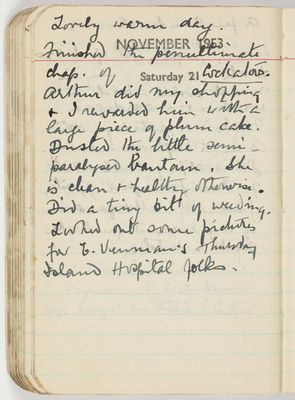 Lovely warm day.
Finished the penultimate
NOVEMBER 1953
chap. of Cockatoos.
Saturday 21
Arthur did my shopping
& I rewarded him with a
large piece of plum cake.
Dusted the little semi
paralysed bantam. She
is clean & healthy otherwise.
Did a tiny bit of weeding.
Looked out some pictures
for E. Vennman's Thursday
Island Hospital folks.